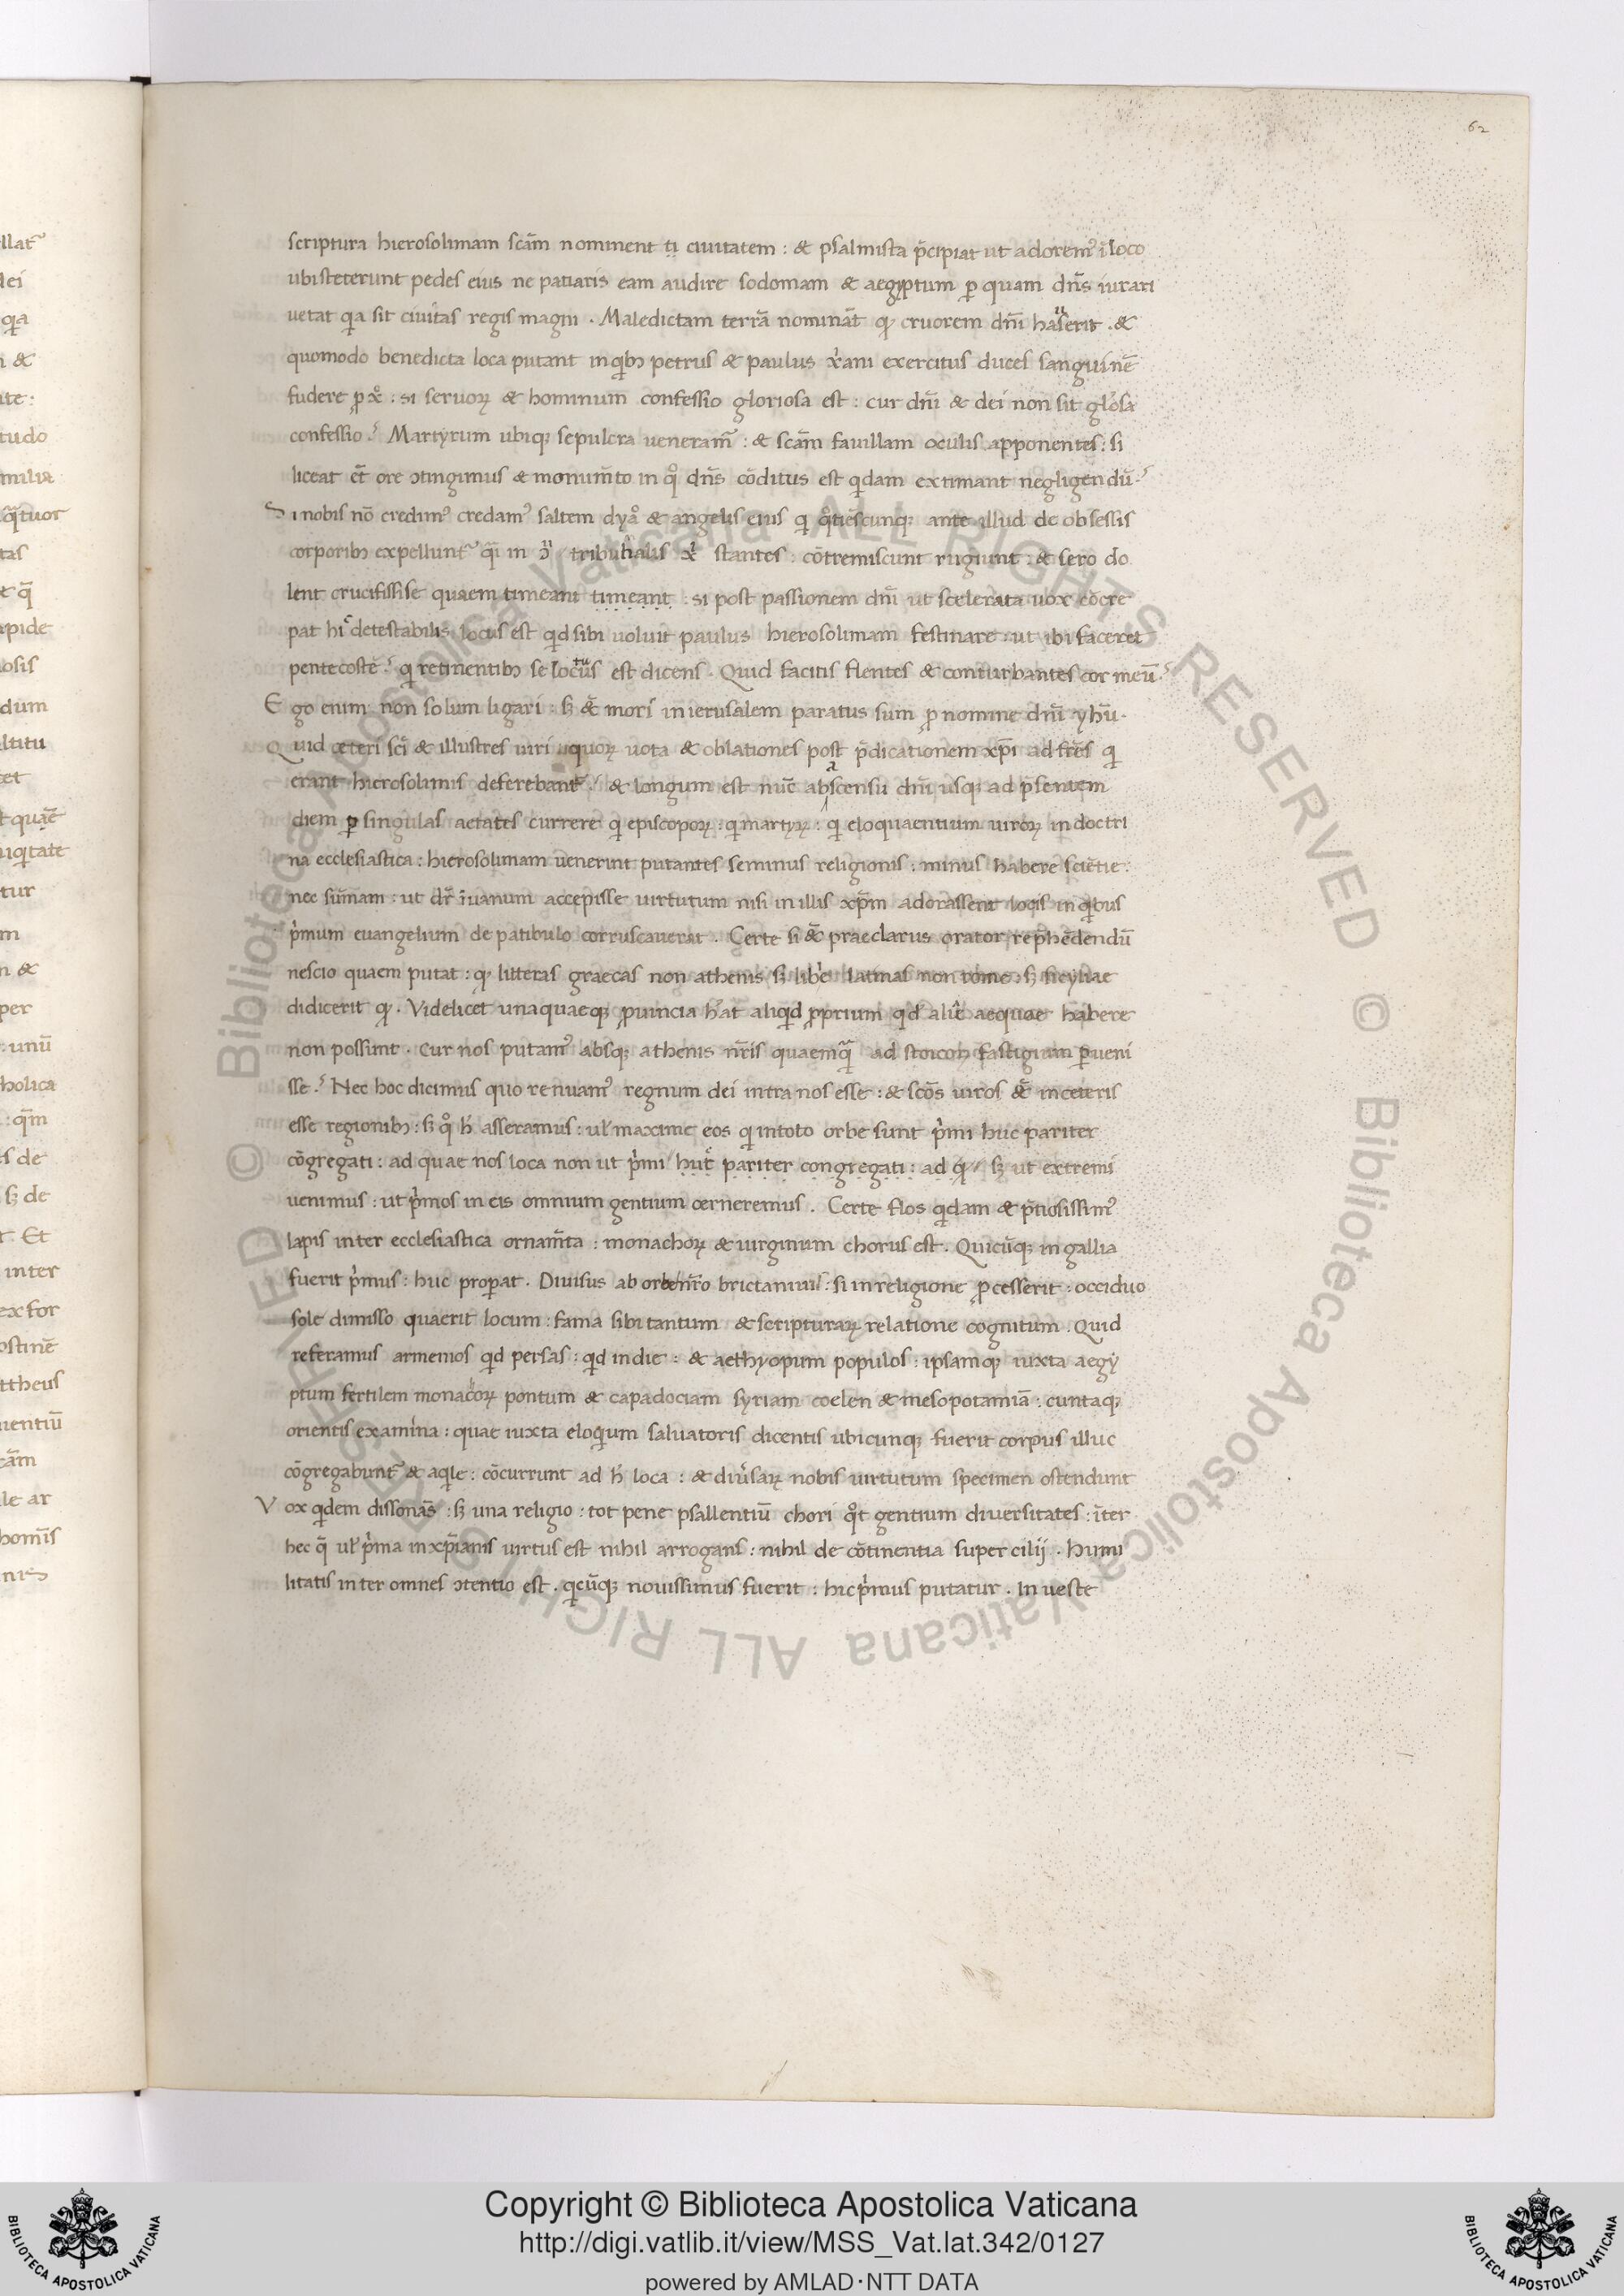 62
scriptura hierosolimam scãm nominent ti ciuitatem : & psalmista p̄cipiat ut adorem᾽ ĩ loco
ubi steterunt pedes eius ne patiaris eam audire sodomam & aegyptum ꝑ quam dñs iurari
uetat qa sit ciuitas regis magni . Maledictam terrã nominãt qꝫ cruorem dñi hauserit . &
quomodo benedicta loca putant in qibꝫ petrus & paulus xp̄iani exercitus duces sanguinẽ
fudere ꝓ xͦ : si seruoꝝ & hominum confessio gloriosa est : cur dñi & dei non sit glosa
confessio ? Martyrum ubiqꝫ sepulcra ueneram᾽ : & scãm fauillam oculis apponentes : si
liceat et̃ ore ↄtingimus & monum̃to in qͦ dñs cõditus est qdam extimant negligendũ ?
Si nobis nõ credim᾽ credam᾽ saltem dyaͦ & angelis eius qi qͦtiẽscunqꝫ ante illud de obsessis
corporibꝫ expellunt᾽ qͣi in ↄͧ tribunalis xͥ stantes : cõtremiscunt rugiunt : & sero do
lent crucifixisse quaem timeant timeant : si post passionem dñi ut scelerata uox cõcre
pat hͨ detestabilis locus est qd sibi uoluit paulus hierosolimam festinare : ut ibi faceret
pentecostẽ ? qi retinentibꝫ se locutus est dicens . Quid facitis flentes & conturbantes cor meũ ?
Ego enim non solum ligari : sꝫ &̃ mori in ierusalem paratus sum ꝓ nomine dñi yhũ .
Quid ceteri sci & illustres uiri quoꝝ uota & oblationes post p̄dicationem xp̄i ad frẽs qi
erant hierosolimis deferebant᾽ ? & longum est nũc abascensu dñi usqꝫ ad p̄sentem
diem ꝑ singulas aetates currere qi episcopoꝝ : qi martyꝝ : qi eloquaentium uiroꝝ in doctri
na ecclesiastica : hierosolimam uenerint putantes se minus religionis : minus habere sciẽtie :
nec sum̃am : ut dr̃ manum accepisse uirtutum nisi in illis xp̄m adorassent locis in qibus
pͥmum euangelium de patibulo corruscauerat . Certe si &̃ praeclarus orator rep̄hẽdendũ
nescio quaem putat : qꝫ litteras graecas non athenis sꝫ libͥe latinas non rome : sꝫ sicyliae
didicerit qꝫ . Videlicet unaquaeqꝫ ꝓuincia hat aliqd ꝓprium qd alie aequae habere
non possint . Cur nos putam᾽ absqꝫ athenis nr̃is quaemqͣ ad stoicoꝝ fastigium ꝑueni
sse ? Nec hoc dicimus quo renuam᾽ regnum dei intra nos esse : & scõs uiros &̃ in ceteris
esse regionibꝫ : sꝫ qͦ h̃ asseramus : ul̃ maxime eos qi in toto orbe sunt pͥmi huc pariter
cõgregati : ad quae nos loca non ut pͥmi / huc pariter congregati : ad q̃ / sꝫ ut extremi
uenimus : ut pͥmos in eis omnium gentium cerneremus . Certe flos qidam & p̄tiosissim᾽
lapis inter ecclesiastica ornam̃ta : monachoꝝ & uirginum chorus est . Quicũqꝫ in gallia
fuerit pͥmus : huc proꝑat . Diuisus ab orbe nr̃o brictannus : si in religione ꝓcesserit : occiduo
sole dimisso quaerit locum : fama sibi tantum & scripturaꝝ relatione cognitum . Quid
referamus armenios qd persas : qd indie : & aethyopum populos : ipsamqꝫ iuxta aegy
ptum fertilem monacoꝝ pontum & capadociam syriam coelen & mesopotamiã : cuntaqꝫ
orientis examina : quae iuxta eloqium saluatoris dicentis ubicunqꝫ fuerit corpus illuc
cõgregabunt᾽ & aqile : cõcurrunt ad h̃ loca : & diuͥsaꝝ nobis uirtutum specimen ostendunt
Vox qidem dissonãs : sꝫ una religio : tot pene psallentiũ chori qͦt gentium diuersitates : ĩter
hec q̃ ul̃ pͥma in xp̄ianis uirtus est nihil arrogans : nihil de cõtinentia supercilij . humi
litatis inter omnes ↄtentio est . qicũqꝫ nouissimus fuerit : hic pͥmus putatur . In ueste
Copyright © Biblioteca Apostolica Vaticana
http://digi.vatlib.it/view/MSS_Vat.lat.342/0127
powered by AMLAD·NTT DATA